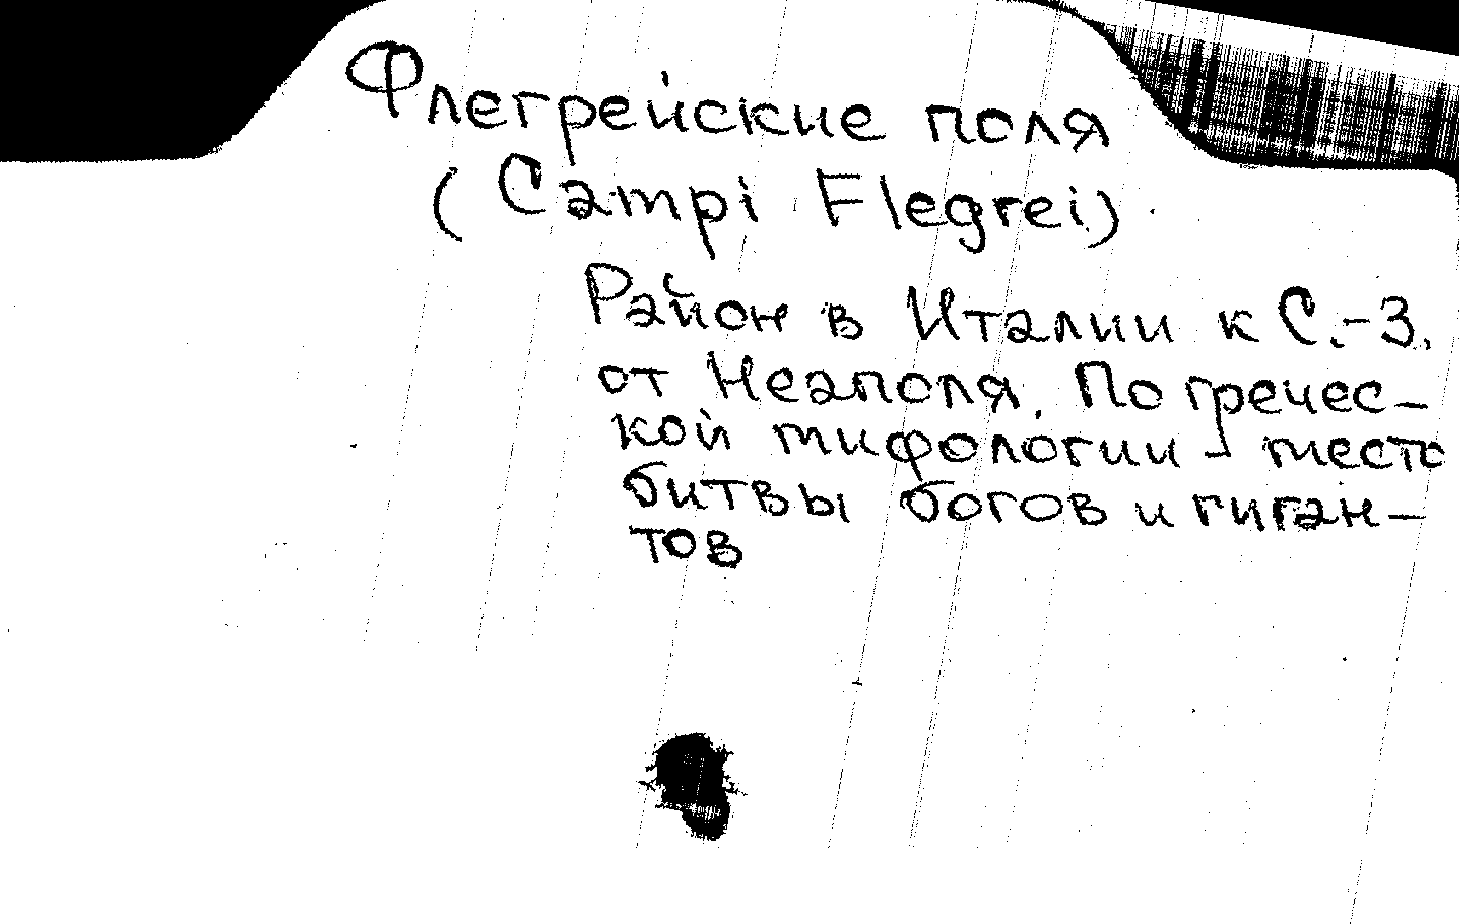 Флегрейские поля
(Campi Flegrei)
Район в Италии к С.-З.
от Неаполя. По гречес-
кой мифологии - место
битвы богов и гиган-
тов